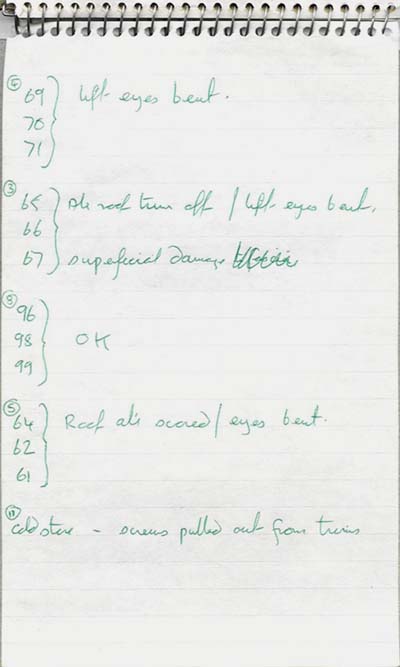 ④
69 } left eyes bent.
70
71
③
65 } Ali roof trim off / left eyes bent.
66
67 superficial damage
⑨
96
98 } OK
99
⑤
64 } Roof ali scored / eyes bent.
62
61
⑪
cold store - screws pulled out from trims